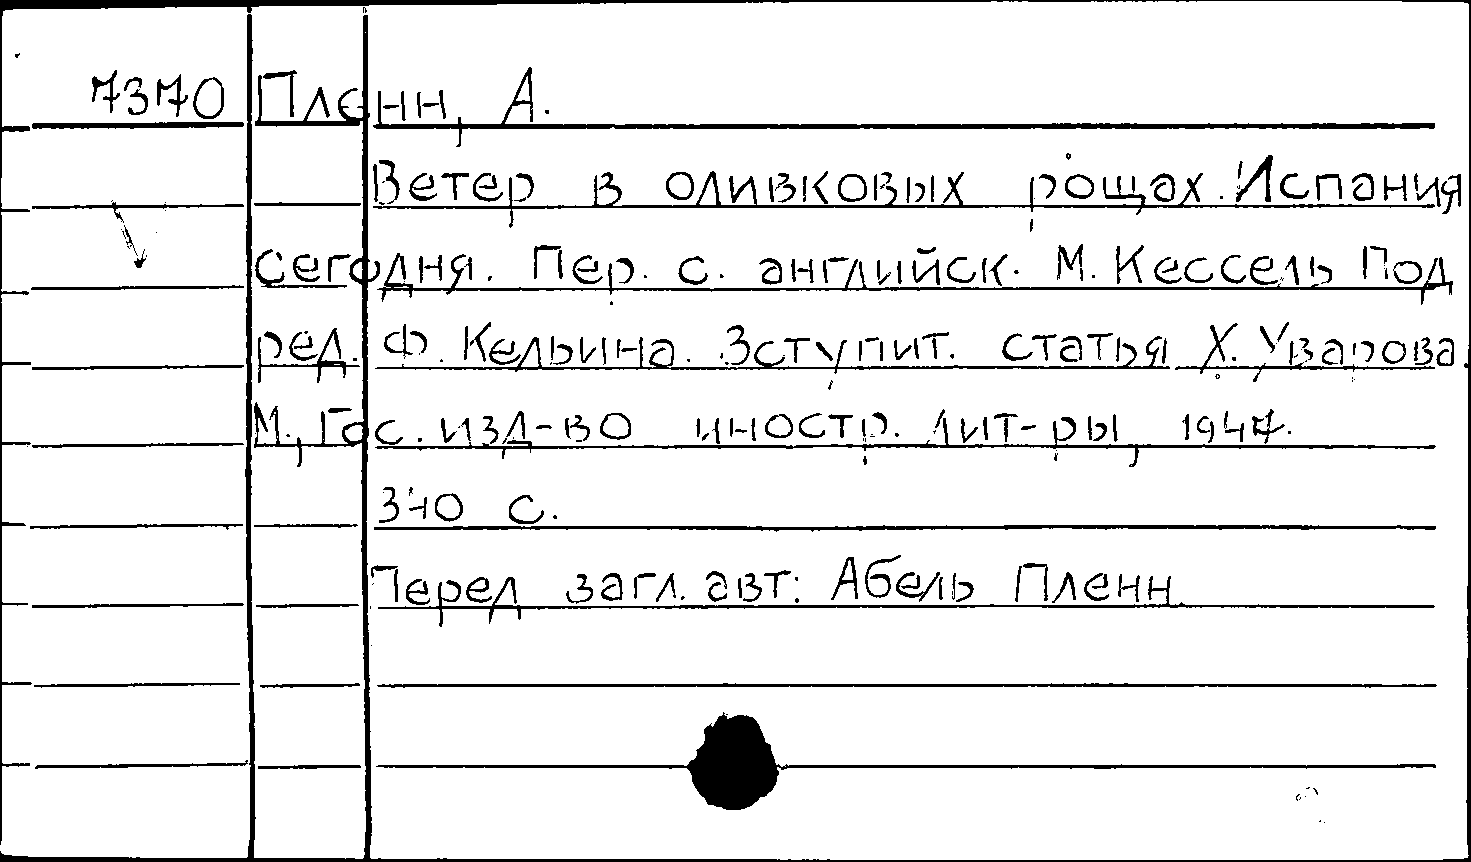 7370 Пленн, А.
Ветер в оливковых рощах. Испания
сегодня. Пер. с. английск. М. Кессель Под
ред. Ф. Кельина. Вступит. статья Х. Уварова.
М., Гос. изд-во иностр. лит-ры, 1947.
340 с.
Перед загл. авт: Абель Пленн